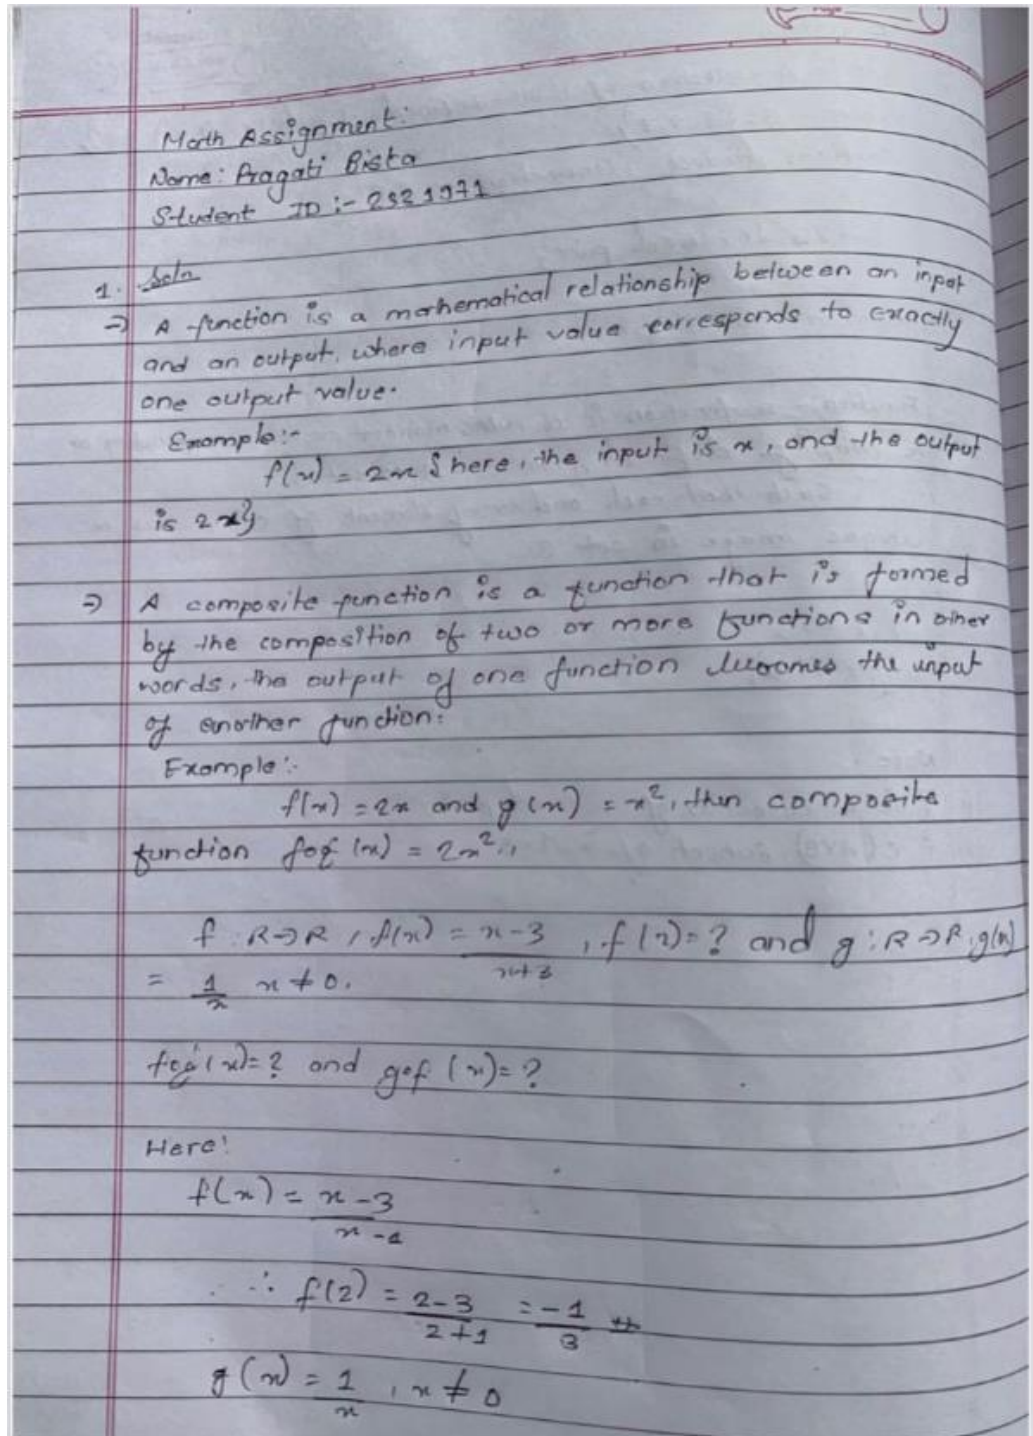 Math Assignment:
Name: Pragati Bista
Student ID :- 2321971
1. Soln
=> A function is a mathematical relationship between an input
and an output, where input value corresponds to exactly
one output value.
Example:-
f(x) = 2x { here, the input is x, and the output
is 2x}
=> A composite function is a function that is formed
by the composition of two or more functions in other
words, the output of one function becomes the input
of another function.
Example:-
f(x) = 2x and g(x) = x², then composite
function fog (x) = 2x²
f : R→R , f(x) = x-3 / x+3 , f(2)=? and g : R→R, g(x)
= 1/x x ≠ 0.
fog(x)=? and gof (x)=?
Here:
f(x) = x-3 / x-1
∴ f(2) = 2-3 / 2+1 = -1/3
g(x) = 1/x , x ≠ 0